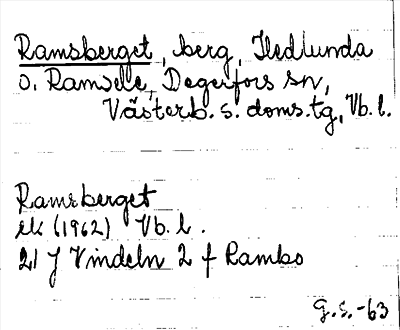 Ramsberget, berg, Hedlunda
o. Ramsele, Degerfors sn,
Västerb. s. doms.tg, Vb. l.
Ramsberget
ek (1962) Vb. l.
21 J Vindeln 2 f Rambo
G.S.-63